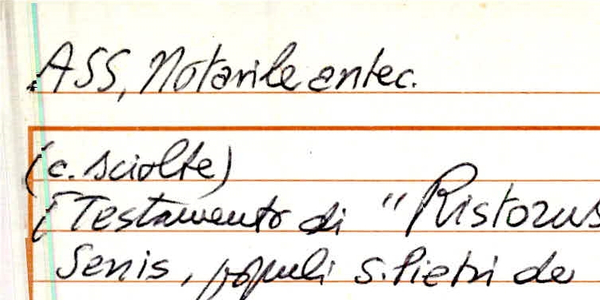 ASS, Notarile antec.
(c. sciolte)
[Testamento di "Ristorus
Senis, populi S. Pietri de